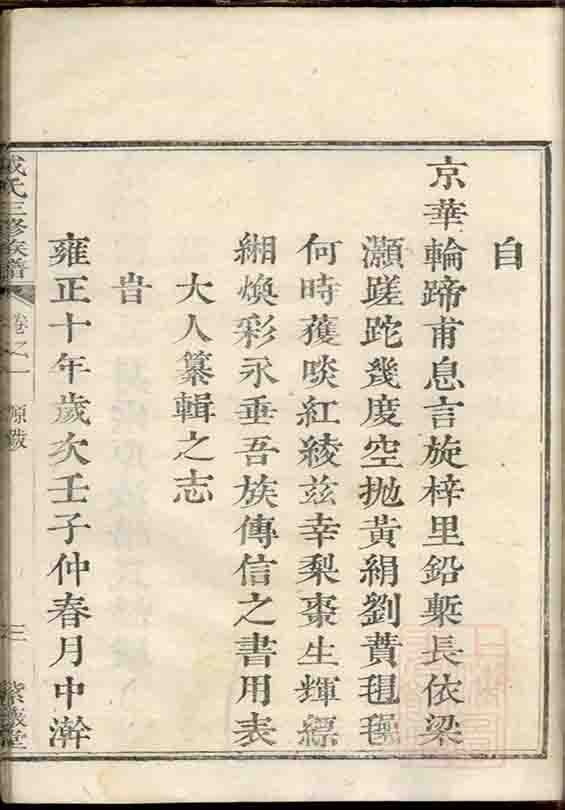 自
京華輪蹄甫息言旋梓里鉛槧長依梁
灝蹉跎幾度空拋黃絹劉蕡毷氉
何時獲啖紅綾茲幸梨棗生輝縹
緗煥彩永垂吾族傳信之書用表
大人纂輯之志
旹
雍正十年歲次壬子仲春月中澣
成氏三修族譜 卷之一 原跋 三